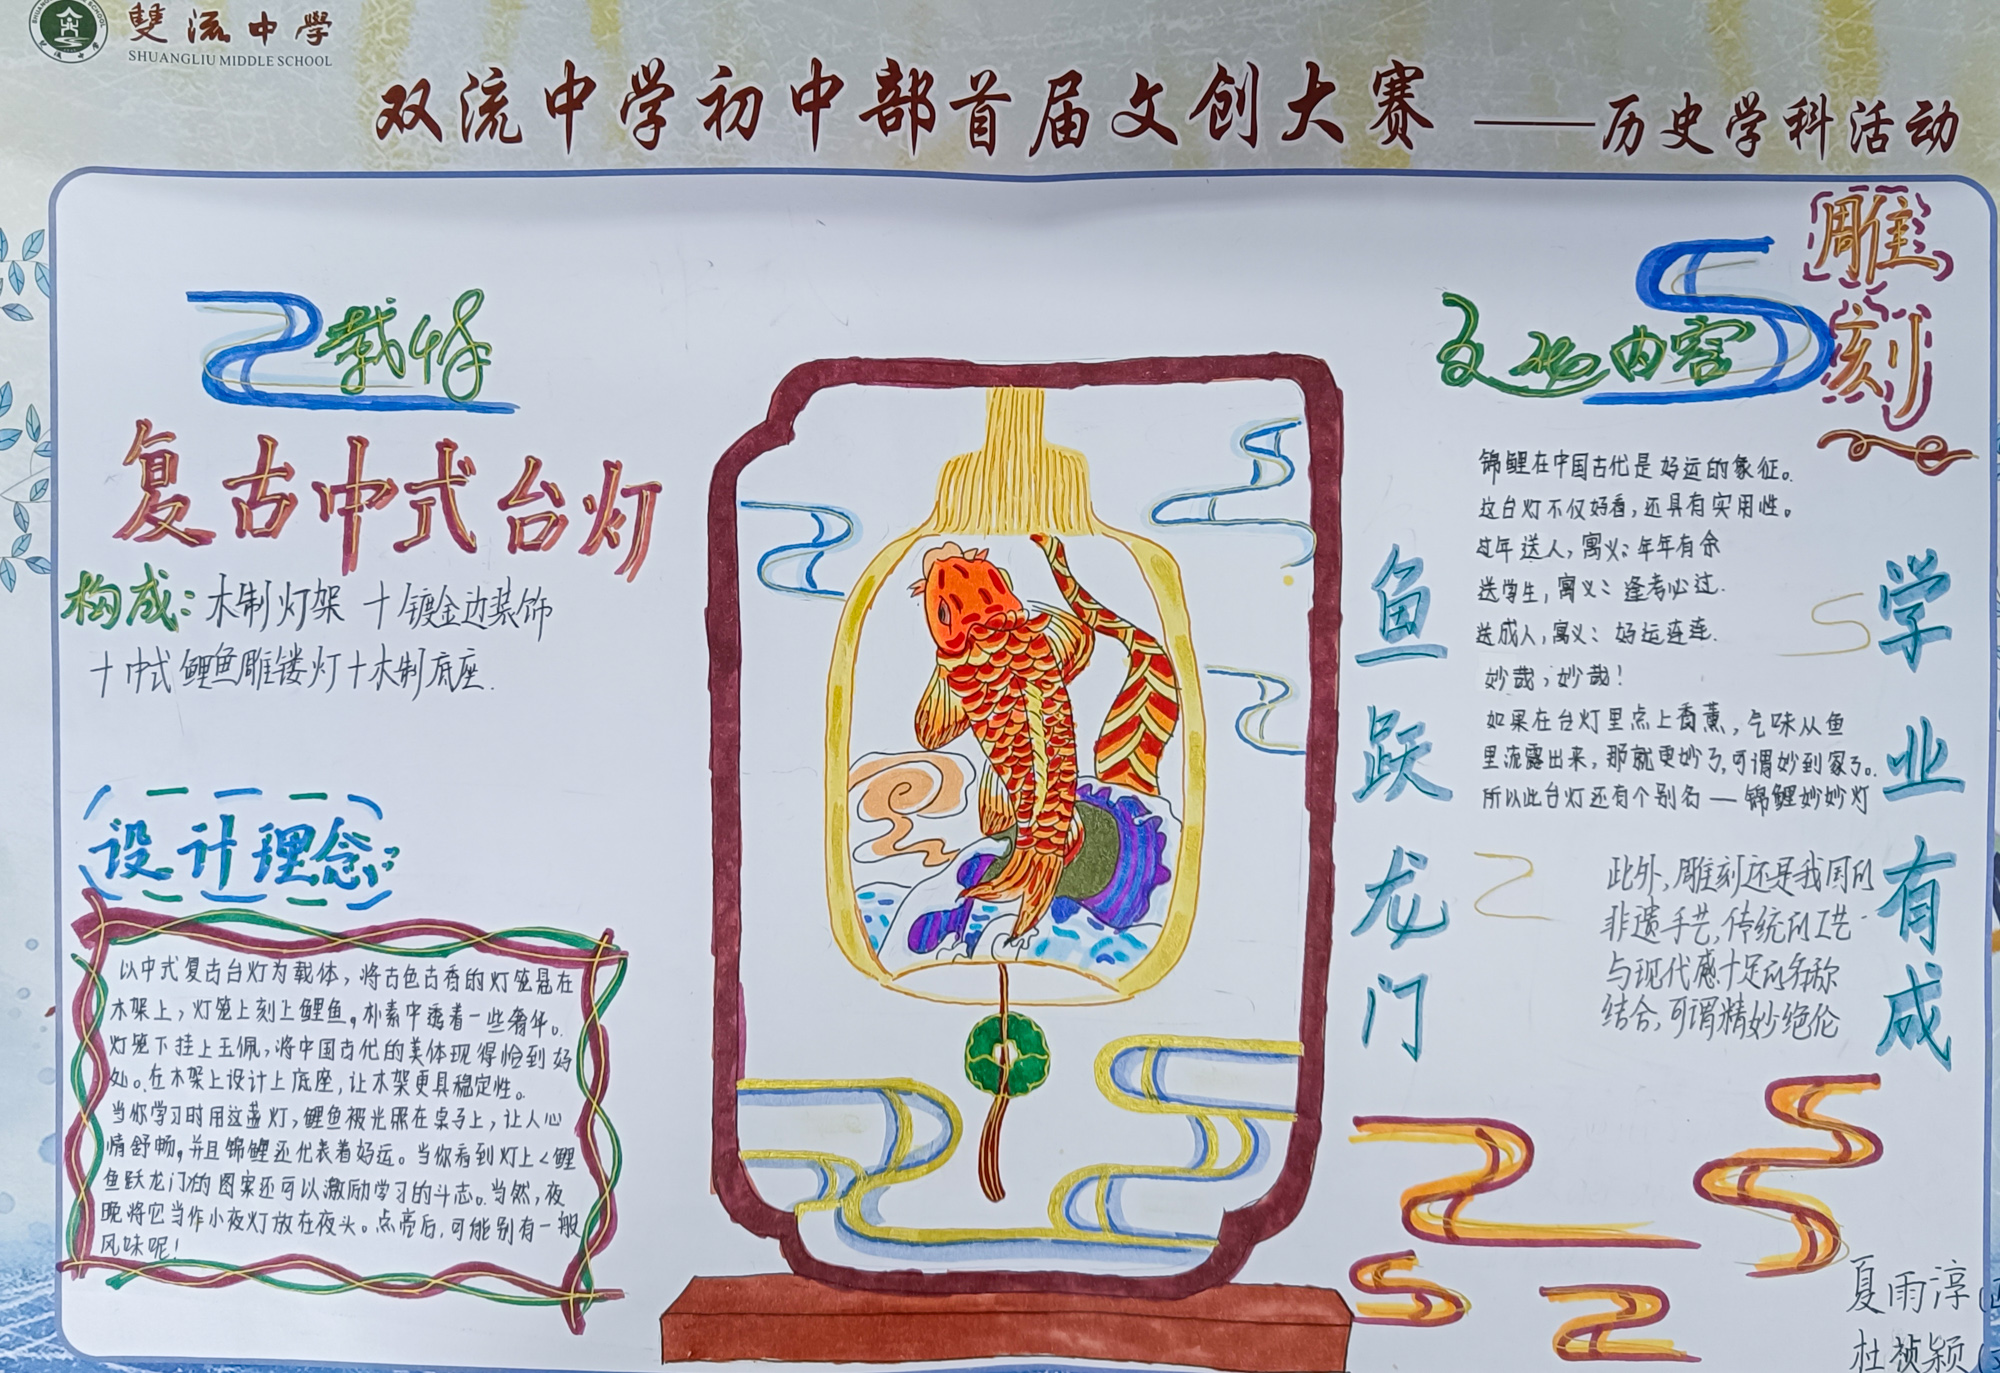 雙流中學
SHUANGLIU MIDDLE SCHOOL
双流中学初中部首届文创大赛
——历史学科活动
载体
复古中式台灯
构成:木制灯架+镀金边装饰
+中式鲤鱼雕镂灯+木制底座.
设计理念
以中式复古台灯为载体,将古色古香的灯笼悬在
木架上,灯笼上刻上鲤鱼,朴素中透着一些奢华。
灯笼下挂上玉佩,将中国古代的美体现得恰到好
处。在木架上设计上底座,让木架更具稳定性。
当你学习时用这盏灯,鲤鱼被光照在桌子上,让人心
情舒畅,并且锦鲤还代表着好运。当你看到灯上<鲤
鱼跃龙门的图案还可以激励学习的斗志。当然,夜
晚将它当作小夜灯放在夜头。点亮后,可能别有一般
风味呢!
文化内容
雕
刻
锦鲤在中国古代是好运的象征。
这台灯不仅好看,还具有实用性。
过年送人,寓义:年年有余
送学生,寓义:逢考必过.
送成人,寓义:好运连连.
妙哉,妙哉!
如果在台灯里点上香薰,气味从鱼
里流露出来,那就更妙了,可谓妙到家了。
所以此台灯还有个别名—锦鲤妙妙灯
此外,雕刻还是我国的
非遗手艺,传统的工艺
与现代感十足的名称
结合,可谓精妙绝伦
鱼跃龙门
学业有成
夏雨淳
杜祯颖